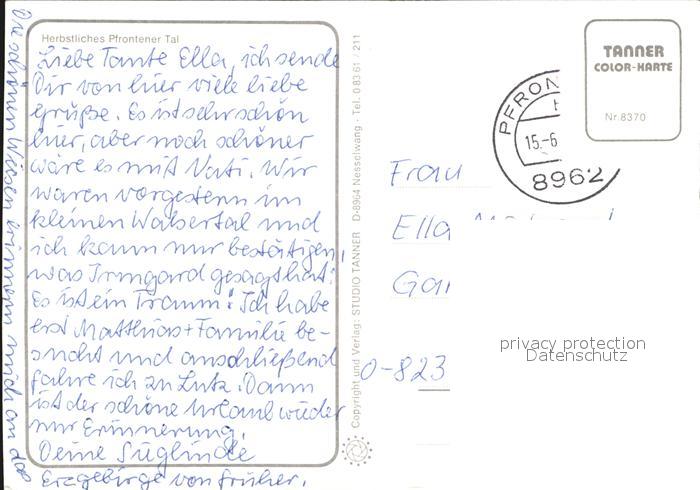 Herbstliches Pfrontener Tal
Liebe Tante Ella, ich sende
Dir von hier viele liebe
Grüße. Es ist sehr schön
hier, aber noch schöner
wäre es mit Vati. Wir
waren vorgestern im
kleinen Walsertal und
ich kann nur bestätigen,
was Irmgard gesagt hat:
Es ist ein Traum! Ich habe
erst Matthias + Familie be-
sucht und anschließend
fahre ich zu Lutz. Dann
ist der schöne Urlaub wieder
nur Erinnerung.
Deine Sieglinde
Die schönen Wiesen erinnern mich an das
Erzgebirge von früher.
Copyright und Verlag: STUDIO TANNER D-8964 Nesselwang - Tel. 0 83 61 / 211
TANNER
COLOR-KARTE
Nr. 8370
PFRON
15.-6
8962
Frau
Ella
O-823
privacy protection
Datenschutz